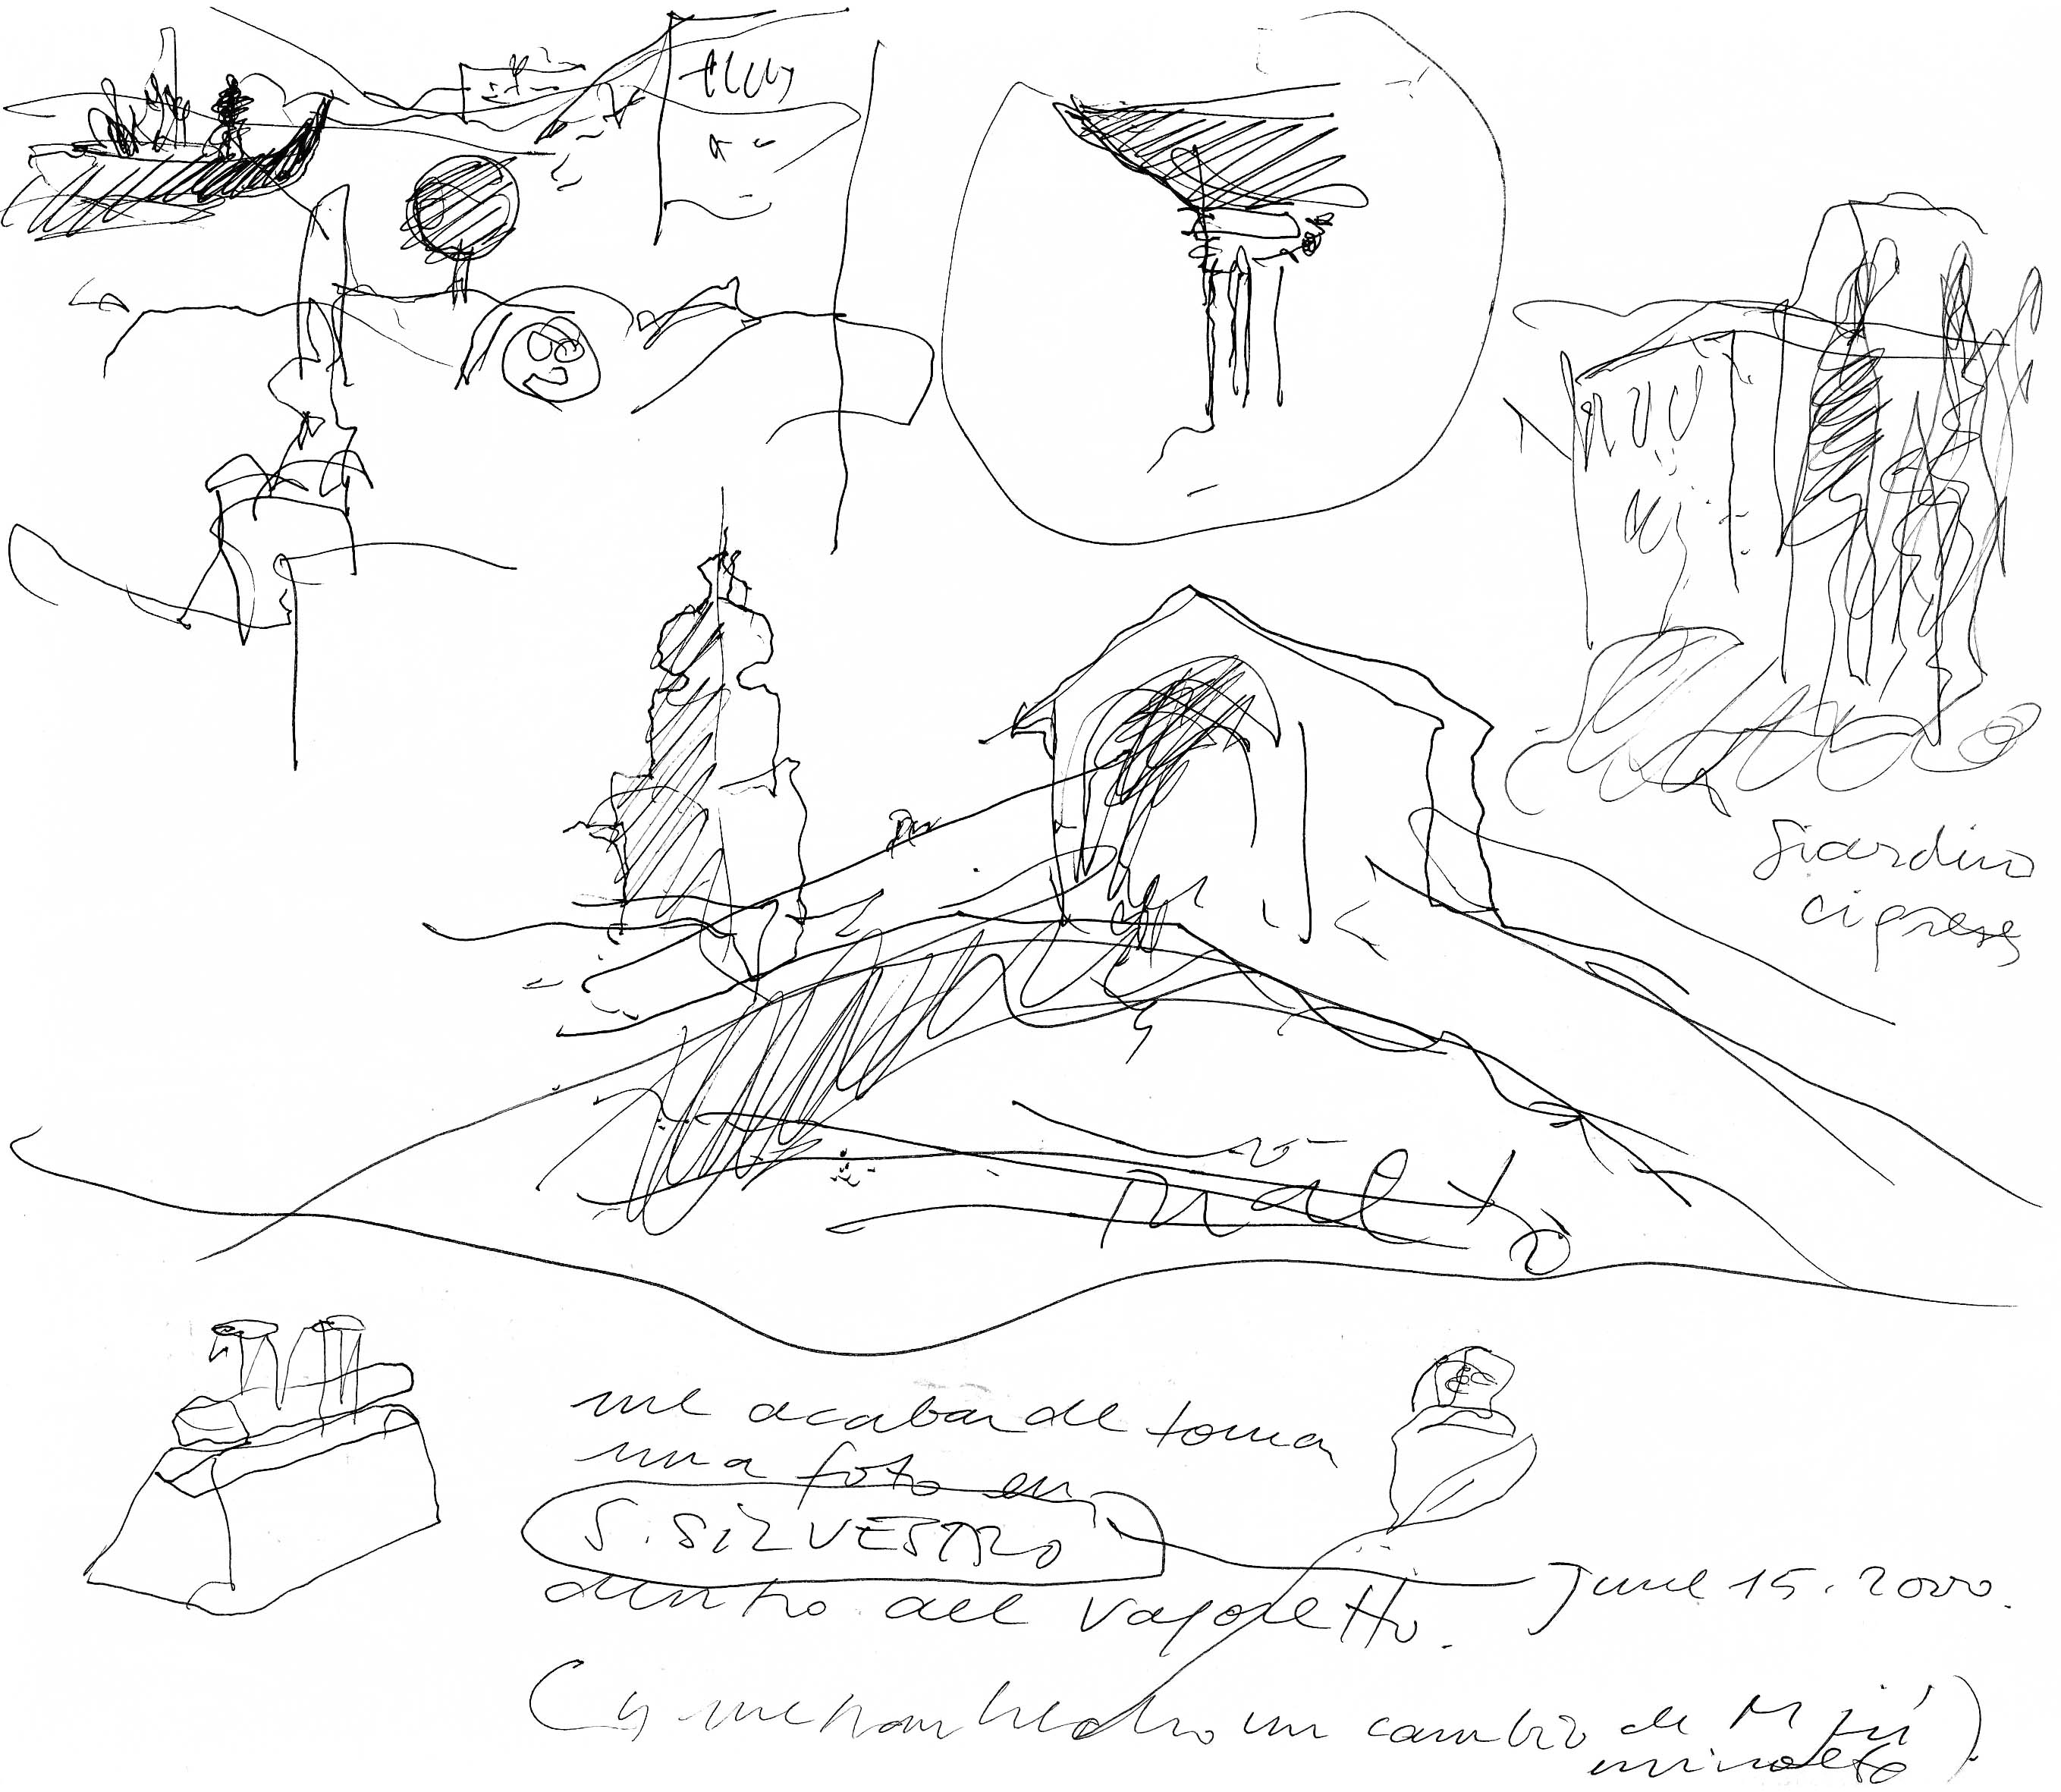 Giardino
cipreses
rialto
me acaban de tomar
una foto en
S. SILVESTRO
dentro del vaporetto.
June 15. 2000.
(y me han hecho un cambio de
minolta